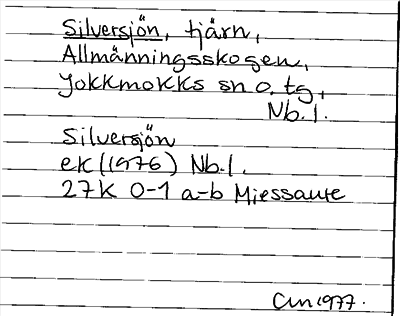 Silversjön, tjärn,
Allmänningsskogen,
Jokkmokks sn o. tg,
Nb.l.
Silversjön
ek (1976) Nb.l.
27K 0-1 a-b Miessaure
CLM 1977.